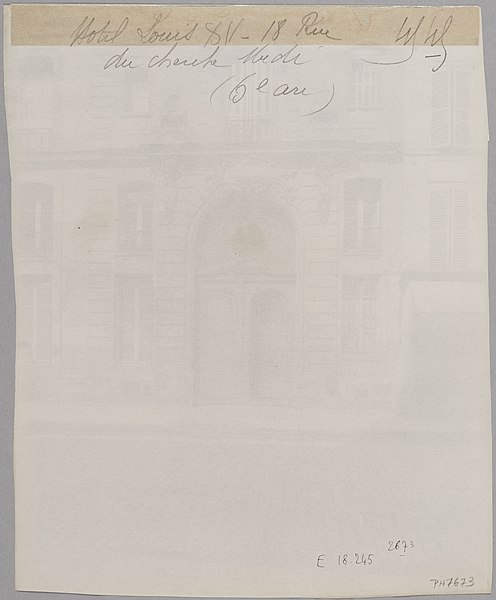 Hotel Louis XV - 18 Rue
du cherche Midi
(6e arr)
2673
E 18.245
PH7673